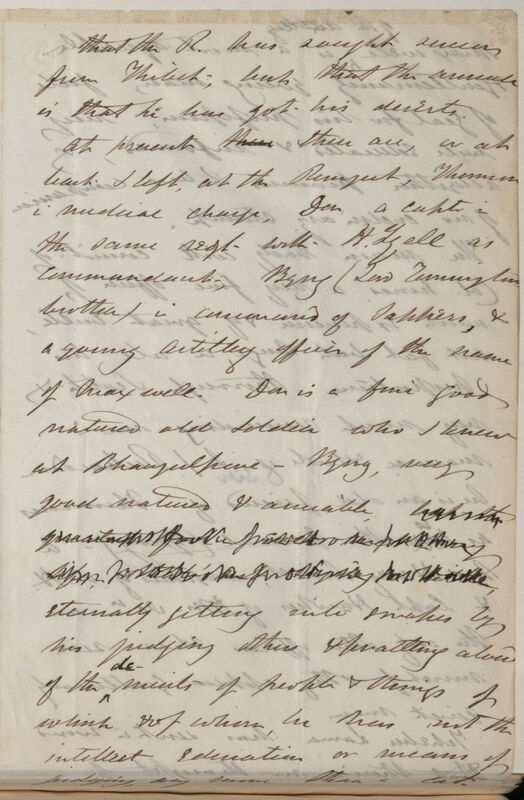 that the R. has sought succour
from Thibet, but that the answer
is that he has got his deserts.
At present there are, or at
least I left, at the Rungeet, Thomson
in medical charge. Don a captn in
the same regt with H. Lyell as
Commandant, Byng (Lord Torrington's
brother) in command of Sappers, &
a young Artillery officer of the name
of Maxwell. Don is a fine good
natured old soldier who I knew
at Bhaugulpore — Byng, very
good natured & amiable,
eternally getting into scrapes by
his judging others & prattling about
of the de-merits of people & things of
which & of whom, he has not the
intellect education or means of
judging any more than a cat.